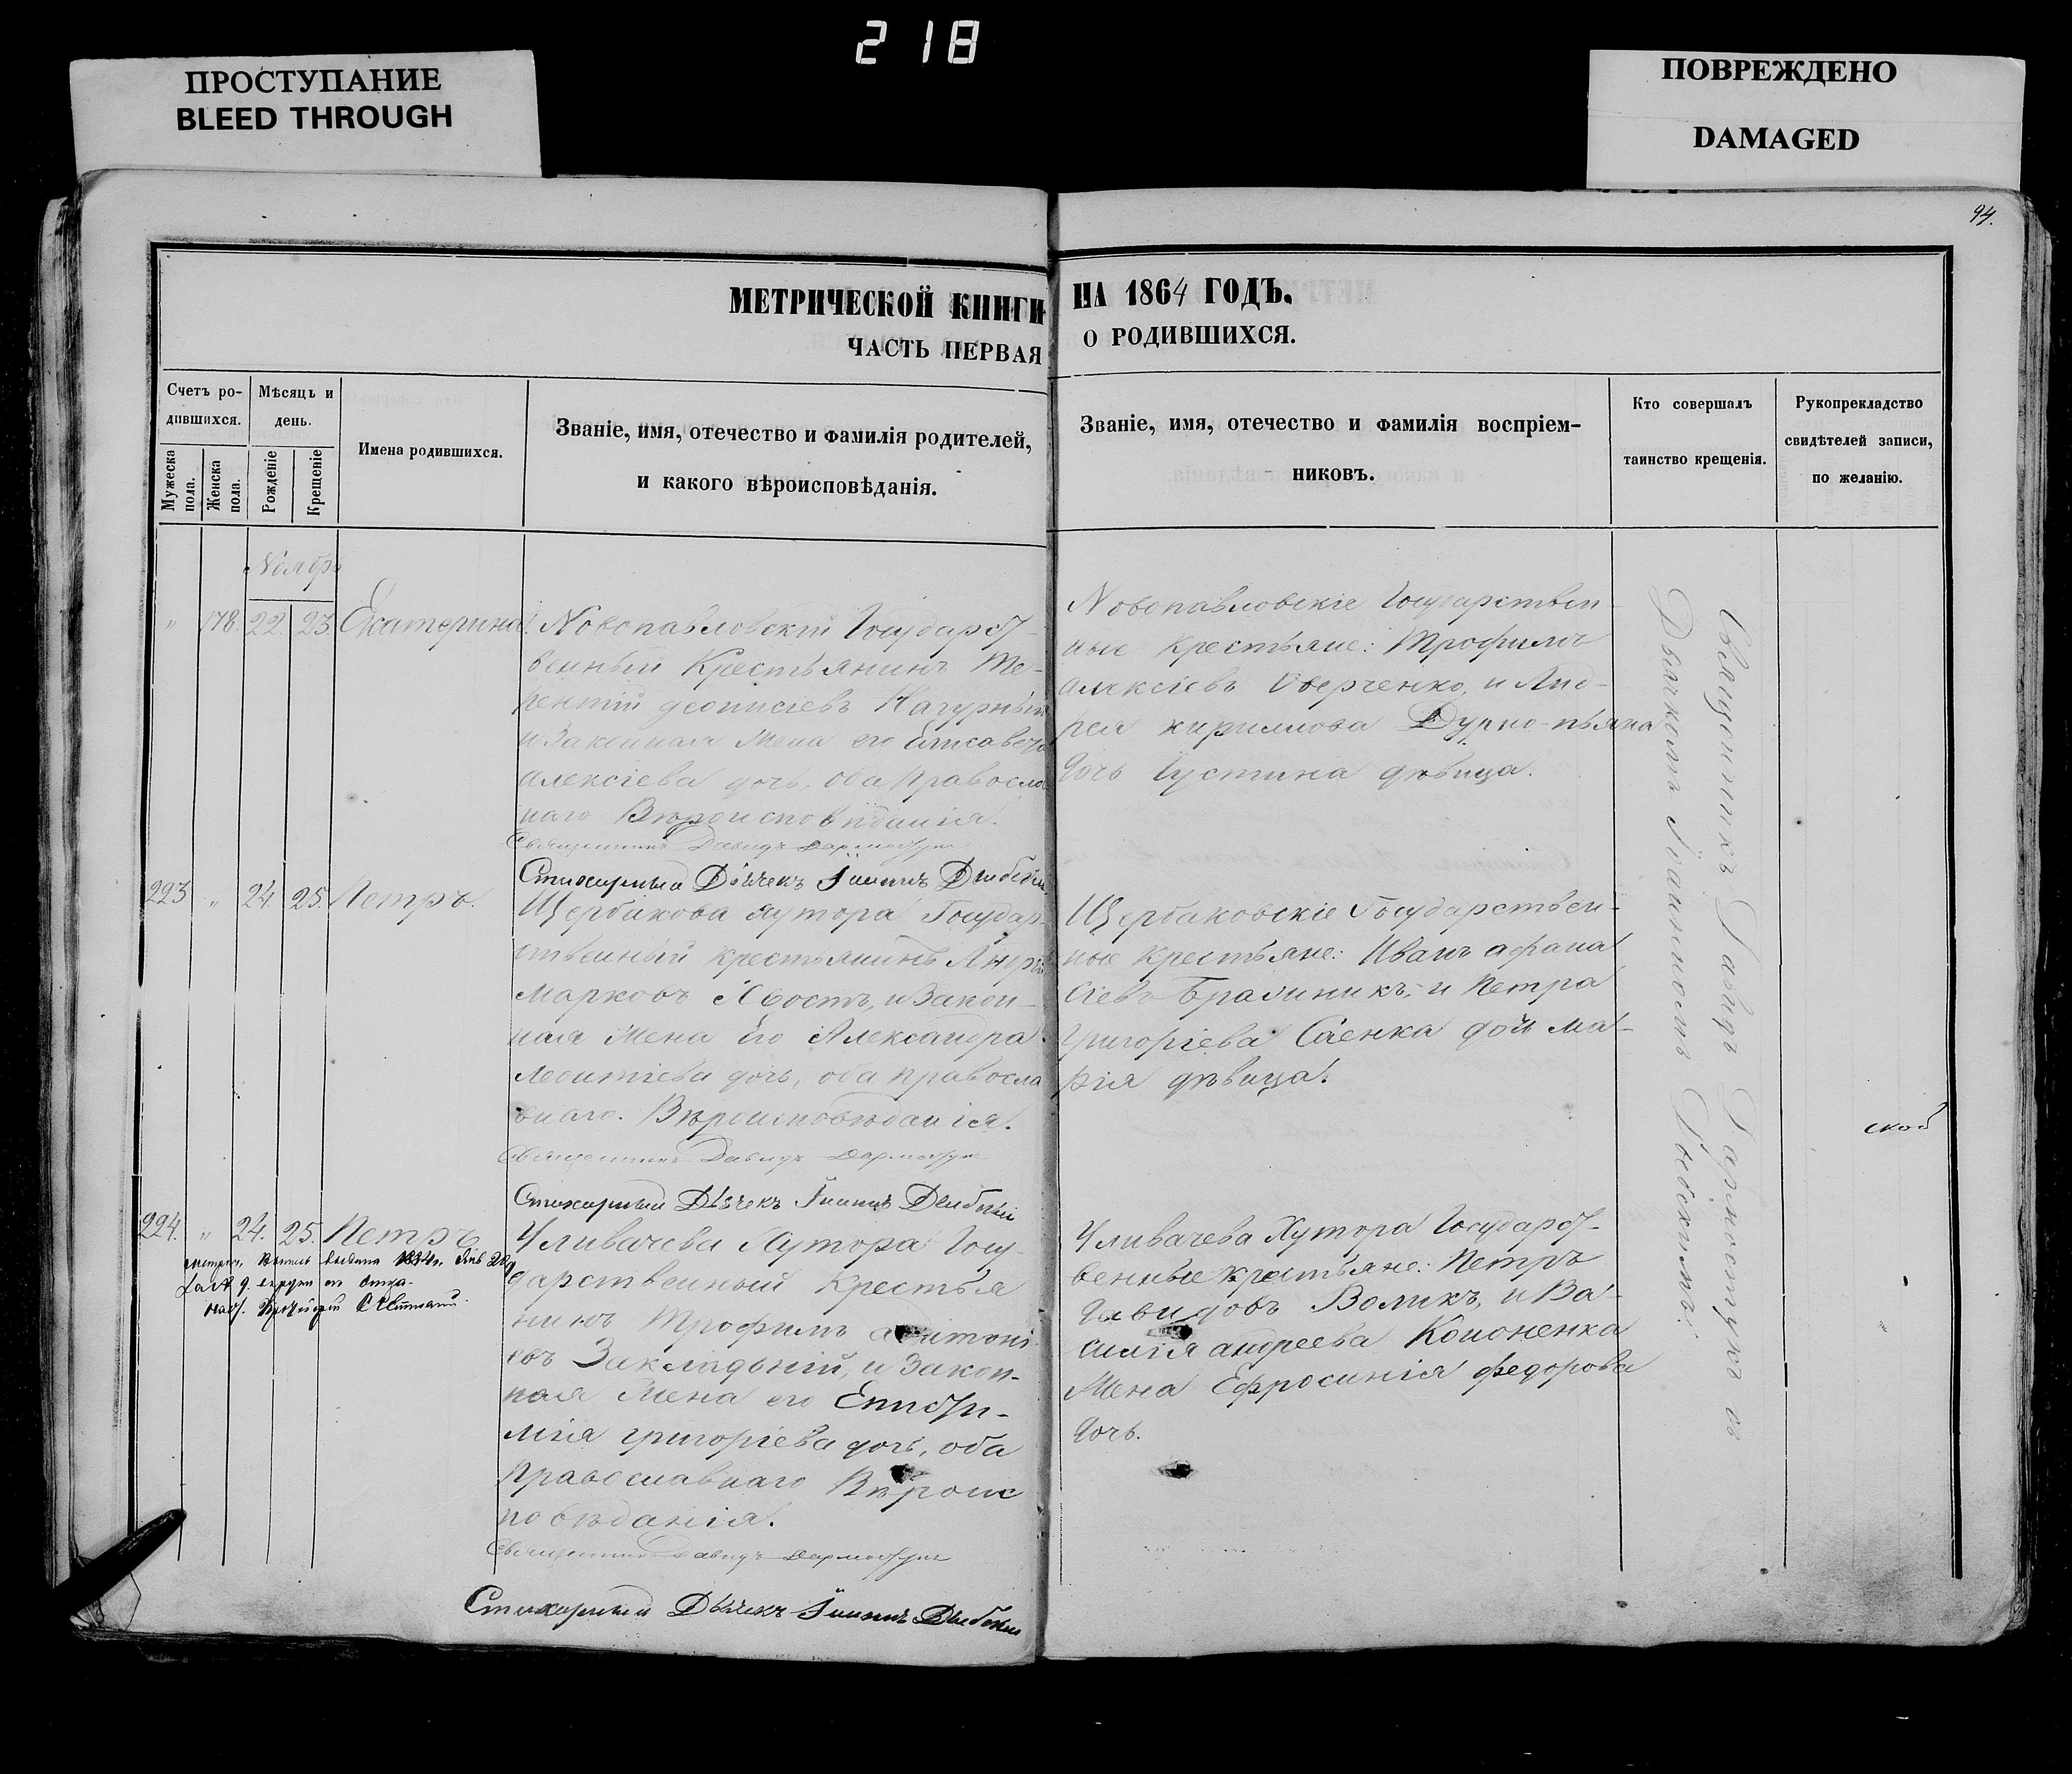 218
ПРОСТУПАНИЕ
BLEED THROUGH
ПОВРЕЖДЕНО
DAMAGED
94.
МЕТРИЧЕСКОЙ КНИГИ НА 1864 ГОДЪ.
ЧАСТЬ ПЕРВАЯ О РОДИВШИХСЯ.
Счетъ ро-
дившихся.
Мужеска
пола.
Женска
пола.
Мѣсяцъ и
день.
Рожденіе
Крещеніе
Имена родившихся.
Званіе, имя, отечество и фамилія родителей,
и какого вѣроисповѣданія.
Званіе, имя, отечество и фамилія воспріем-
никовъ.
Кто совершалъ
таинство крещенія.
Рукоприкладство
свидѣтелей записи,
по желанію.
Ноябрь
" 178. 22. 23. Екатерина.
Новопавловскій Государст-
венный Крестьянинъ Те-
рентій Деонисіевъ Нагурный
и Законная Жена его Елисавета
Алексіева дочь, оба Правосла
наго Вѣроисповѣданія.
Священникъ Давидъ Дармостукъ
Стихарный Дьячекъ Іоаннъ
Новопавловскіе Государствен-
ные крестьяне: Трофимъ
Алексіевъ Оверченко, и Анд-
рея Кирилова Дурно-пьяна
дочь Іустина дѣвица.
223 " 24. 25. Петръ.
Щербакова хутора Государ-
ственный крестьянинъ Андрей
Марковъ Хвостъ, и Закон-
ная Жена его Александра
Леонтіева дочь, оба правосла
внаго Вѣроисповѣданія.
Священникъ Давидъ Дармостукъ
Стихарный Дьячекъ Іоаннъ
Щербаковскіе Государствен-
ные крестьяне: Иванъ Афана
сіевъ и Петра
Григоріева Саенка дочь Ма-
рія дѣвица.
224. " 24. 25. Петръ
Хутора Госу-
дарственный Крестья
нинъ Трофимъ Антоні
евъ Закладный, и Закон-
ная Жена его Еписти-
мія Григоріева дочь, оба
Православнаго Вѣроис
повѣданія.
Священникъ Давидъ Дармостукъ
Стихарный Дьячекъ Іоаннъ
Хутора Государст-
венные крестьяне: Петръ
Давидовъ Воликъ, и Ва-
силія Андреева Кононенка
Жена Ефросинія Федорова
дочь.
Священникъ Давидъ Дармостукъ съ
Дьячкомъ Іоанномъ